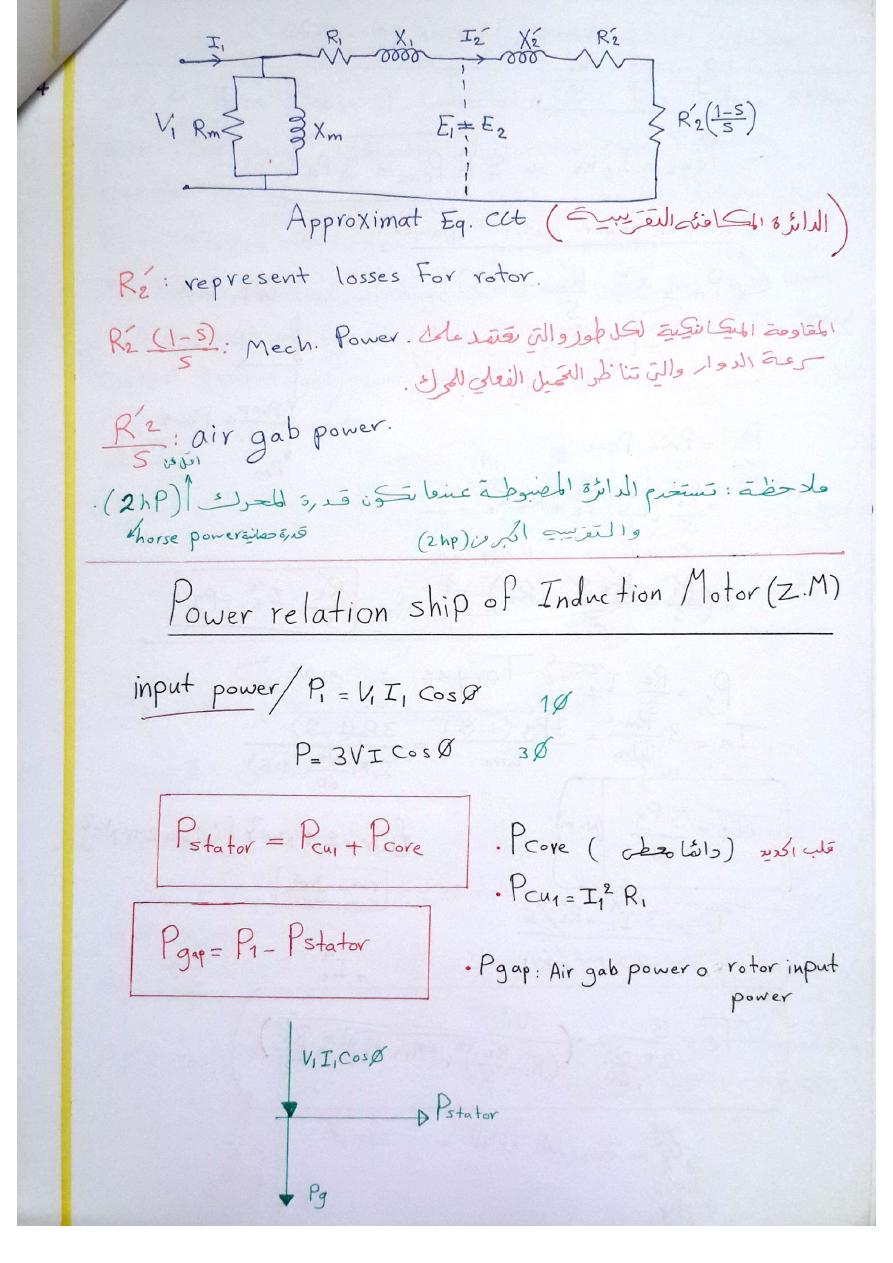 I₁ R₁ X₁ I₂′ X₂′ R₂′
V₁ Rm Xm E₁ = E₂ R₂′(1-S/S)
Approximat Eq. cct (الدائرة المكافئة التقريبية)
R₂′ : represent losses For rotor.
R₂′ (1-S)/S : Mech. Power. المقاومة الميكانيكية لكل طور والتي تعتمد على
سرعة الدوار والتي تناظر التحميل الفعلي للمحرك .
R′₂/S : air gab power.
ملاحظة : تستخدم الدائرة المضبوطة عندما تكون قدرة المحرك اقل من (2hP) .
والتقريبية اكبر من (2hp)
horse power قدرة حصانية
Power relation ship of Induction Motor (Z.M)
input power/ P₁ = V₁ I₁ Cosø 1ø
P= 3VI Cosø 3ø
Pstator = Pcu1 + Pcore
• Pcore ( دائما معطى ) قلب الحديد
• Pcu1 = I₁² R₁
Pgap = P1 - Pstator
• Pgap : Air gab power o rotor input
power
V₁ I₁ Cosø
Pstator
Pg